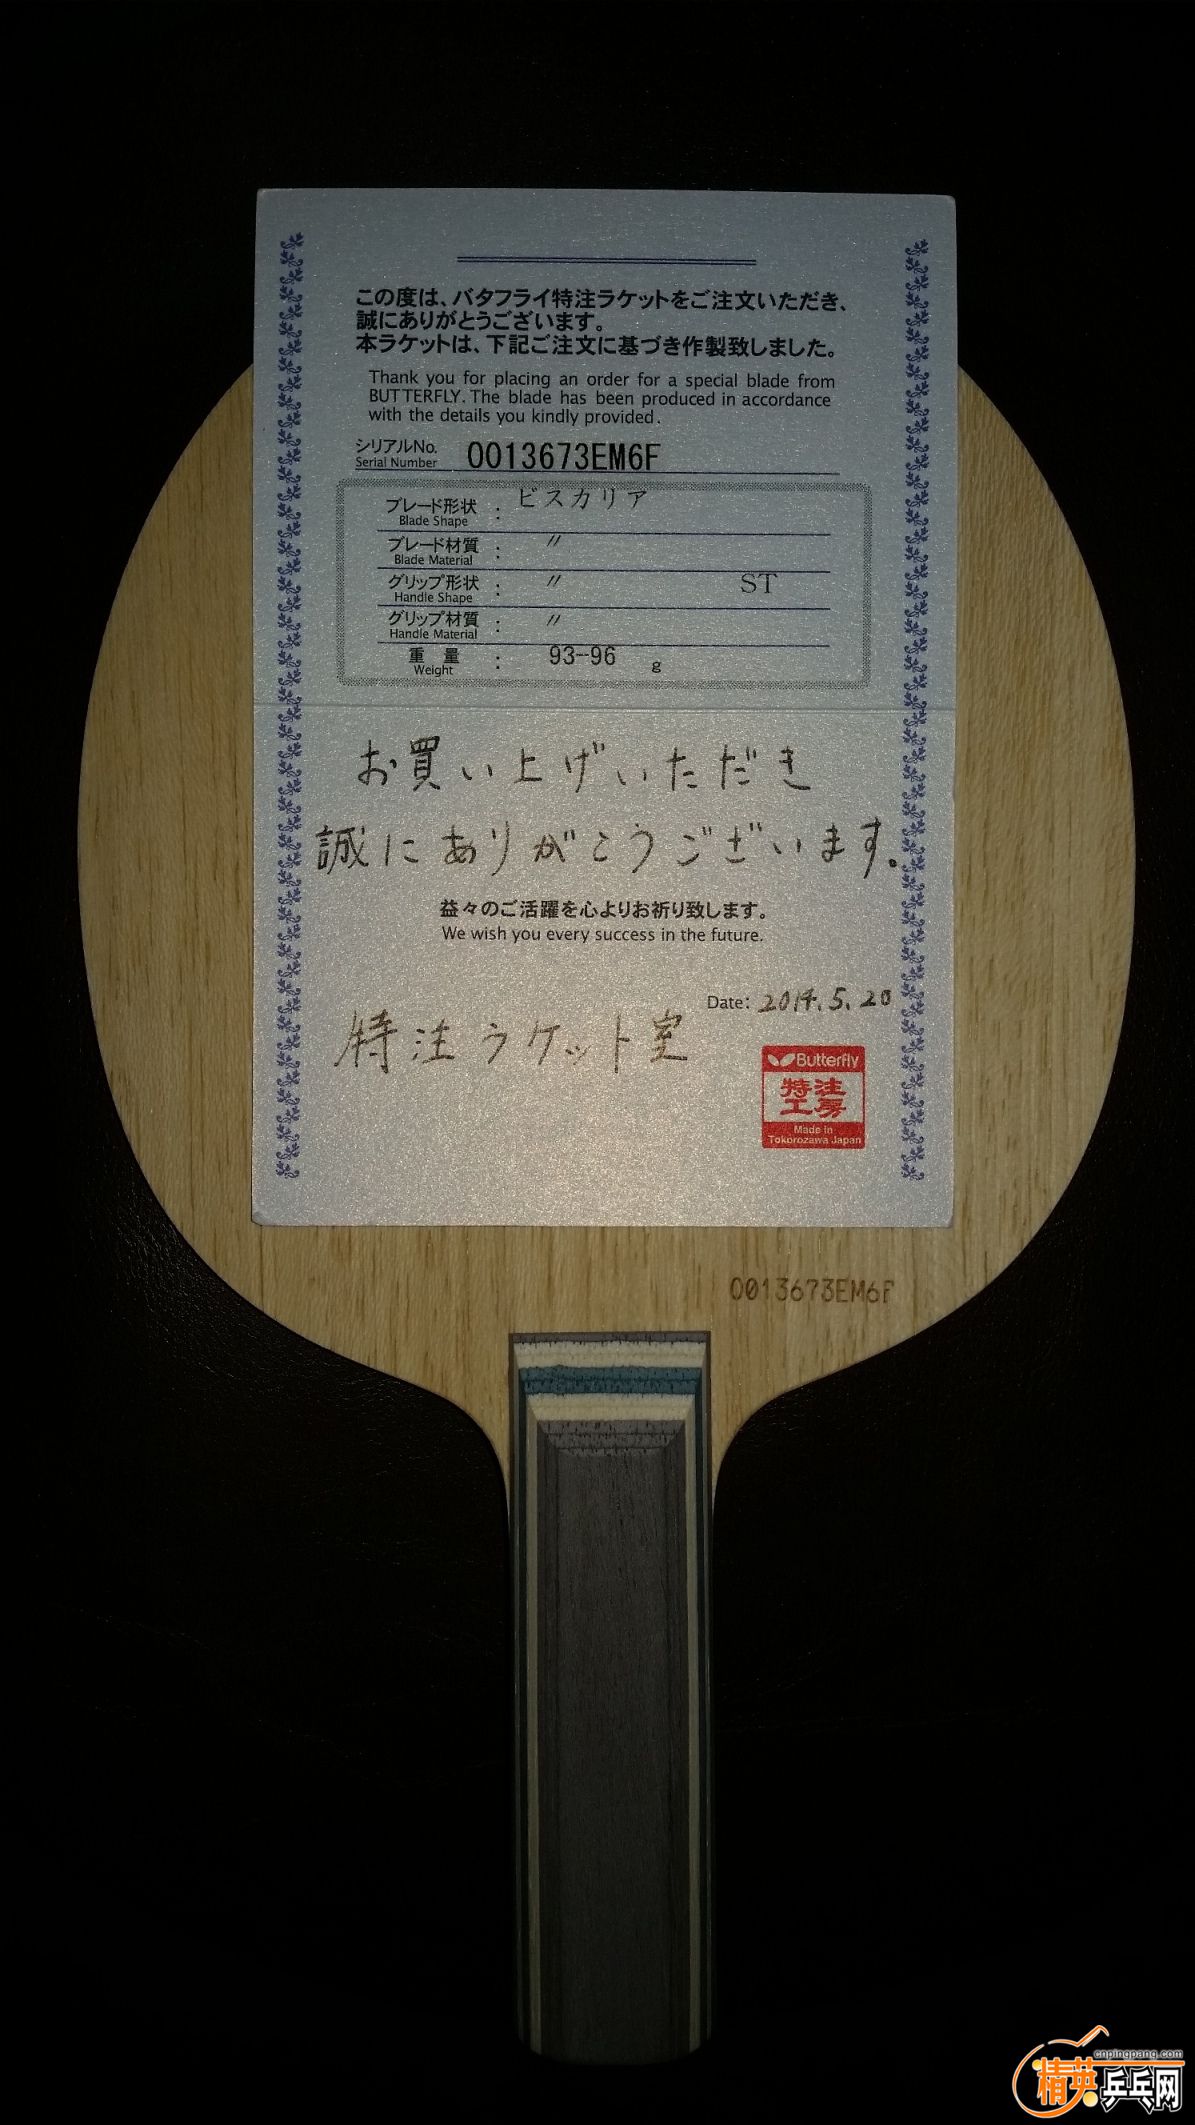 この度は、バタフライ特注ラケットをご注文いただき、
誠にありがとうございます。
本ラケットは、下記ご注文に基づき作製致しました。
Thank you for placing an order for a special blade from
BUTTERFLY. The blade has been produced in accordance
with the details you kindly provided.
シリアルNo.
Serial Number 0013673EM6F
ブレード形状 : ビスカリア
Blade Shape
ブレード材質 : 〃
Blade Material
グリップ形状 : 〃 ST
Handle Shape
グリップ材質 : 〃
Handle Material
重量 : 93-96 g
Weight
お買い上げいただき
誠にありがとうございます。
益々のご活躍を心よりお祈り致します。
We wish you every success in the future.
Date: 2014.5.20
特注ラケット室
Butterfly
特注
工房
Made in
Tokorozawa Japan
0013673EM6F
cnpingpang.com
精英乒乓网